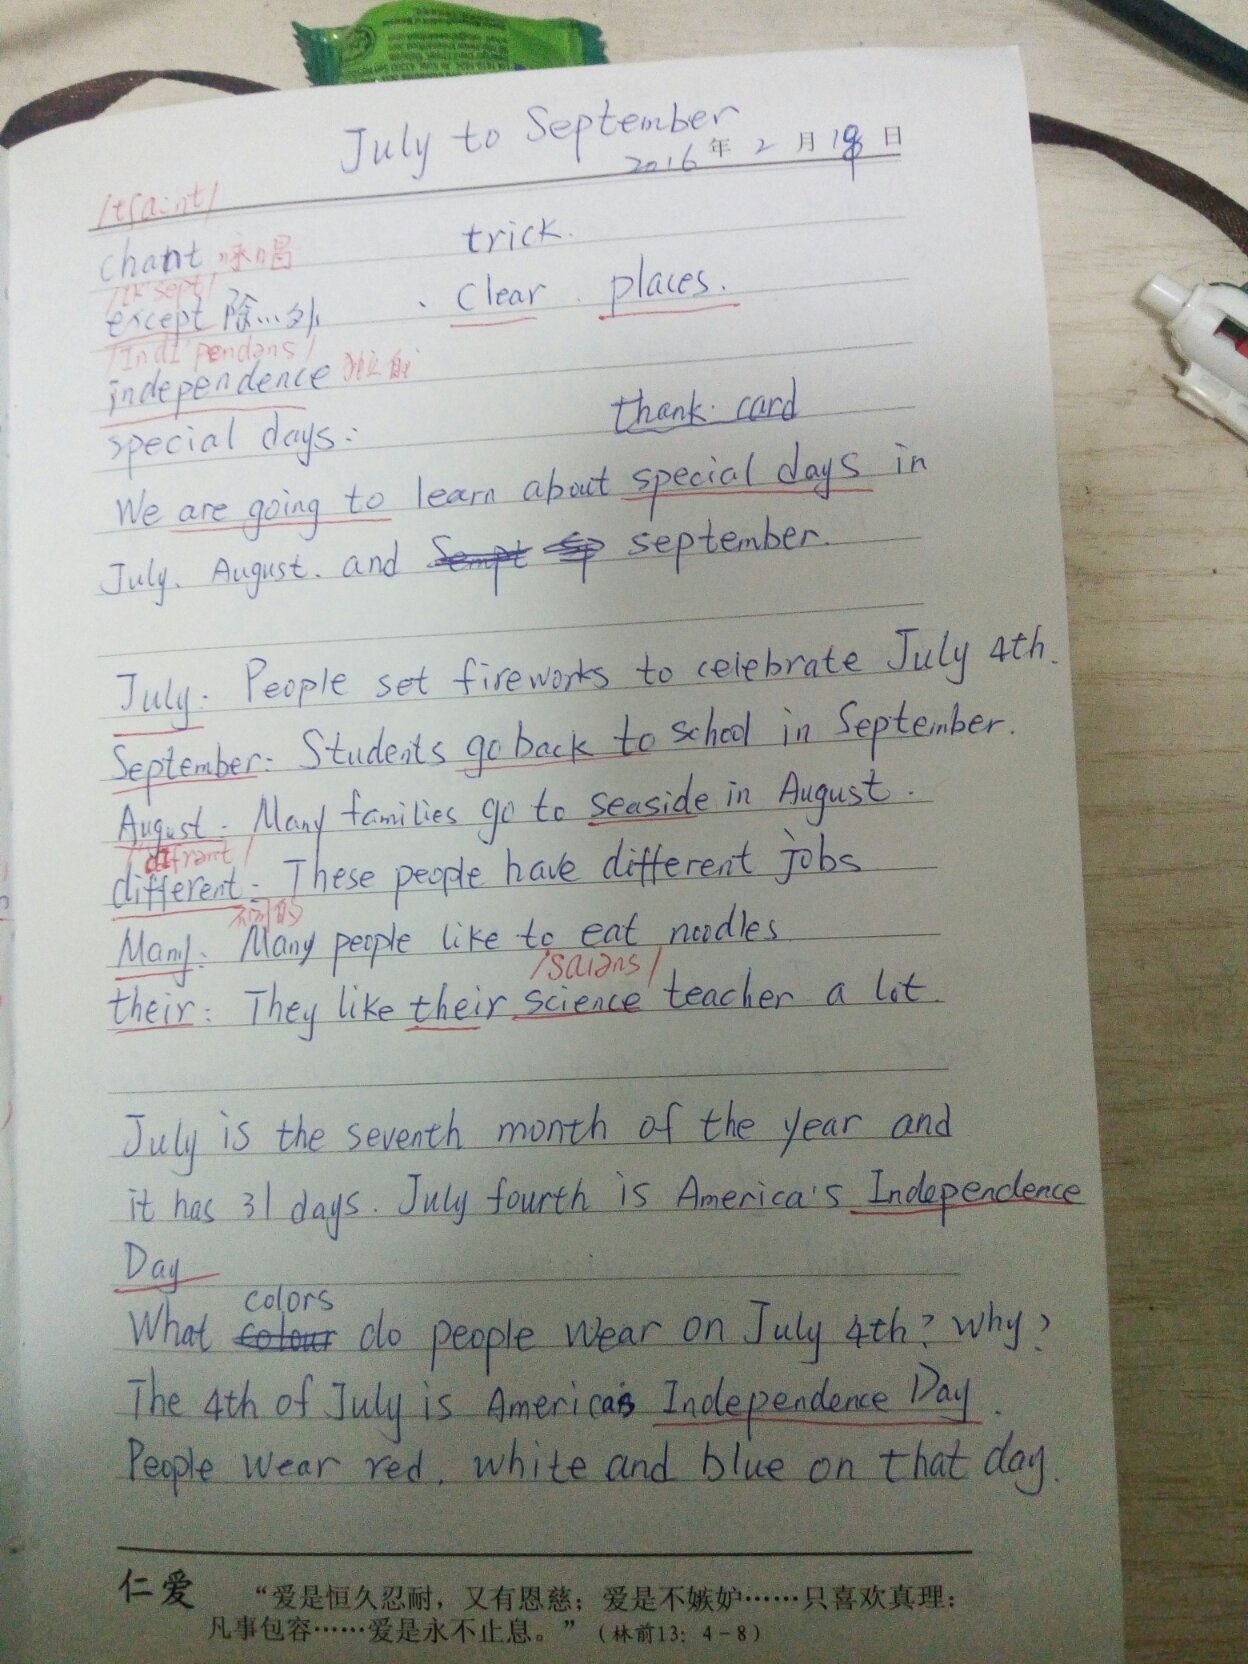 July to September
2016 年 2 月 19 日
/tʃa:nt/
chant 咏唱 trick.
/ɪk'sept/
except 除...外 . clear . places.
/Indi'pendəns/
independence 独立自
thank card
special days:
We are going to learn about special days in
July. August. and september.
July: People set fireworks to celebrate July 4th.
September: Students go back to school in September.
August: Many families go to seaside in August.
/difrənt/
different: These people have different jobs
不同的
Many: Many people like to eat noodles
/saiəns/
their: They like their science teacher a lot.
July is the seventh month of the year and
it has 31 days. July fourth is America's Independence
Day
colors
What colour do people wear on July 4th? why?
The 4th of July is America's Independence Day.
People wear red, white and blue on that day.
仁爱 “爱是恒久忍耐，又有恩慈；爱是不嫉妒……只喜欢真理：
凡事包容……爱是永不止息。”（林前13：4－8）